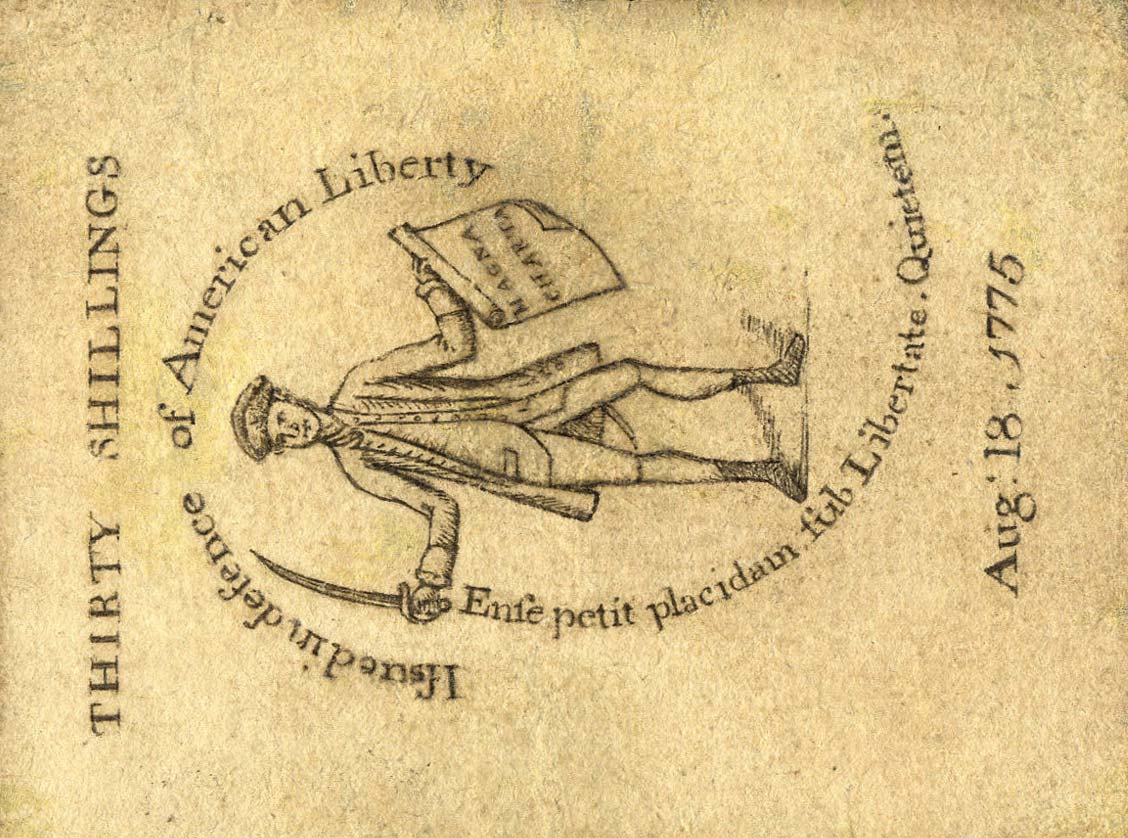 THIRTY SHILLINGS
Iſsued in defence of American Liberty
MAGNA
CHARTA
Enſe petit placidam ſub Libertate. Quietem.
Aug. 18, 1775